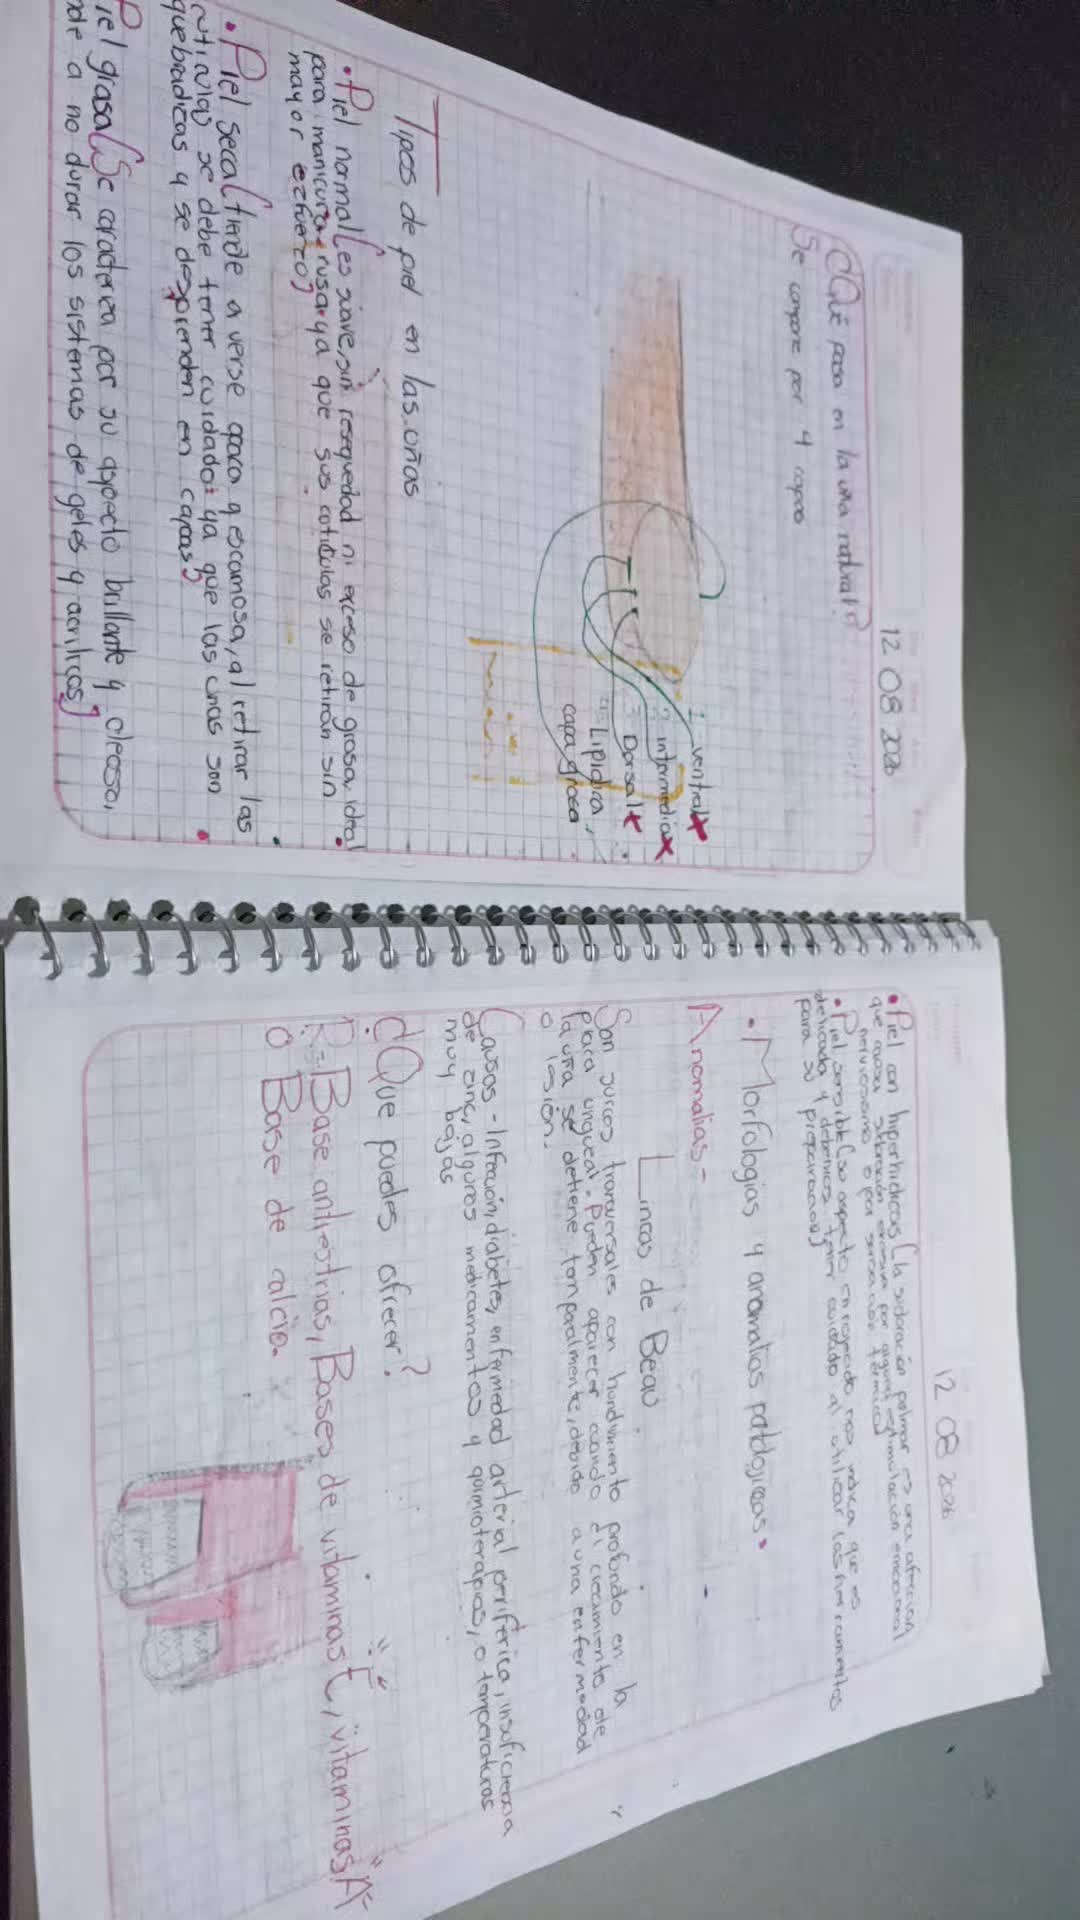 12 08 2026
¿Qué pasa en la uña natural?
Se compone por 4 capas
1. ventral
2. intermedia
3. Dorsal
4. Lipidica,
capa grasa
Tipos de piel en las uñas
• Piel normal (es suave, sin resequedad ni exceso de grasa, ideal
para manicura rusa ya que sus cuticulas se retiran sin
mayor ezfuerzo)
• Piel seca (tiende a verse opaca y escamosa, al retirar las
cuticulas se debe tener cuidado ya que las uñas son
quebradicas y se desprenden en capas)
Piel grasa (Se caracteriza por su aspecto brillante y oleoso,
nde a no durar los sistemas de geles y acrilicos)
12 08 2026
• Piel con hiperhidrosis (la sudoración palmar es una afeccion
que causa sudoración excesiva por alguna estimulación emocional
nerviosismo o por sensación termica)
• Piel sensible (su aspecto enrojecido nos indica que es
delicada y debemos tener cuidado al utilizar las herramientas
para su preparacion)
• Morfologias y anomalias patologicas •
Anomalias -
Lineas de Beau
Son surcos transversales con hundimiento profundo en la
placa ungueal. Pueden aparecer cuando el crecimiento de
la uña se detiene temporalmente, debido a una enfermedad
o lesión.
Causas - Infección, diabetes, enfermedad arterial periferica, insuficiencia
de zinc, algunos medicamentos y quimioterapias, o temperaturas
muy bajas
¿Que puedes ofrecer?
R= Base antiestrias, Bases de vitaminas "E", vitaminas "A"
O Base de calcio.